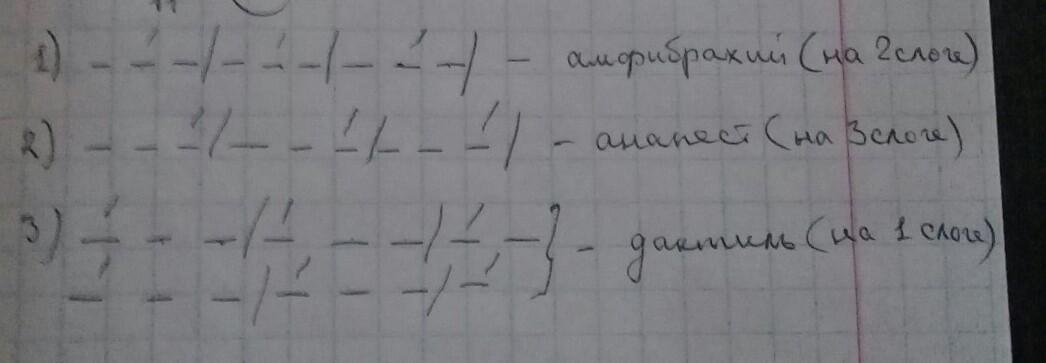 1) _ _́ _ / _ _́ _ / _ _́ _ / – амфибрахий (на 2 слоге)
2) _ _ _́ / _ _ _́ / _ _ _́ / – анапест (на 3 слоге)
3) _́ _ _ / _́ _ _ / _́ _ } – дактиль (на 1 слоге)
_́ _ _ / _́ _ _ / _́